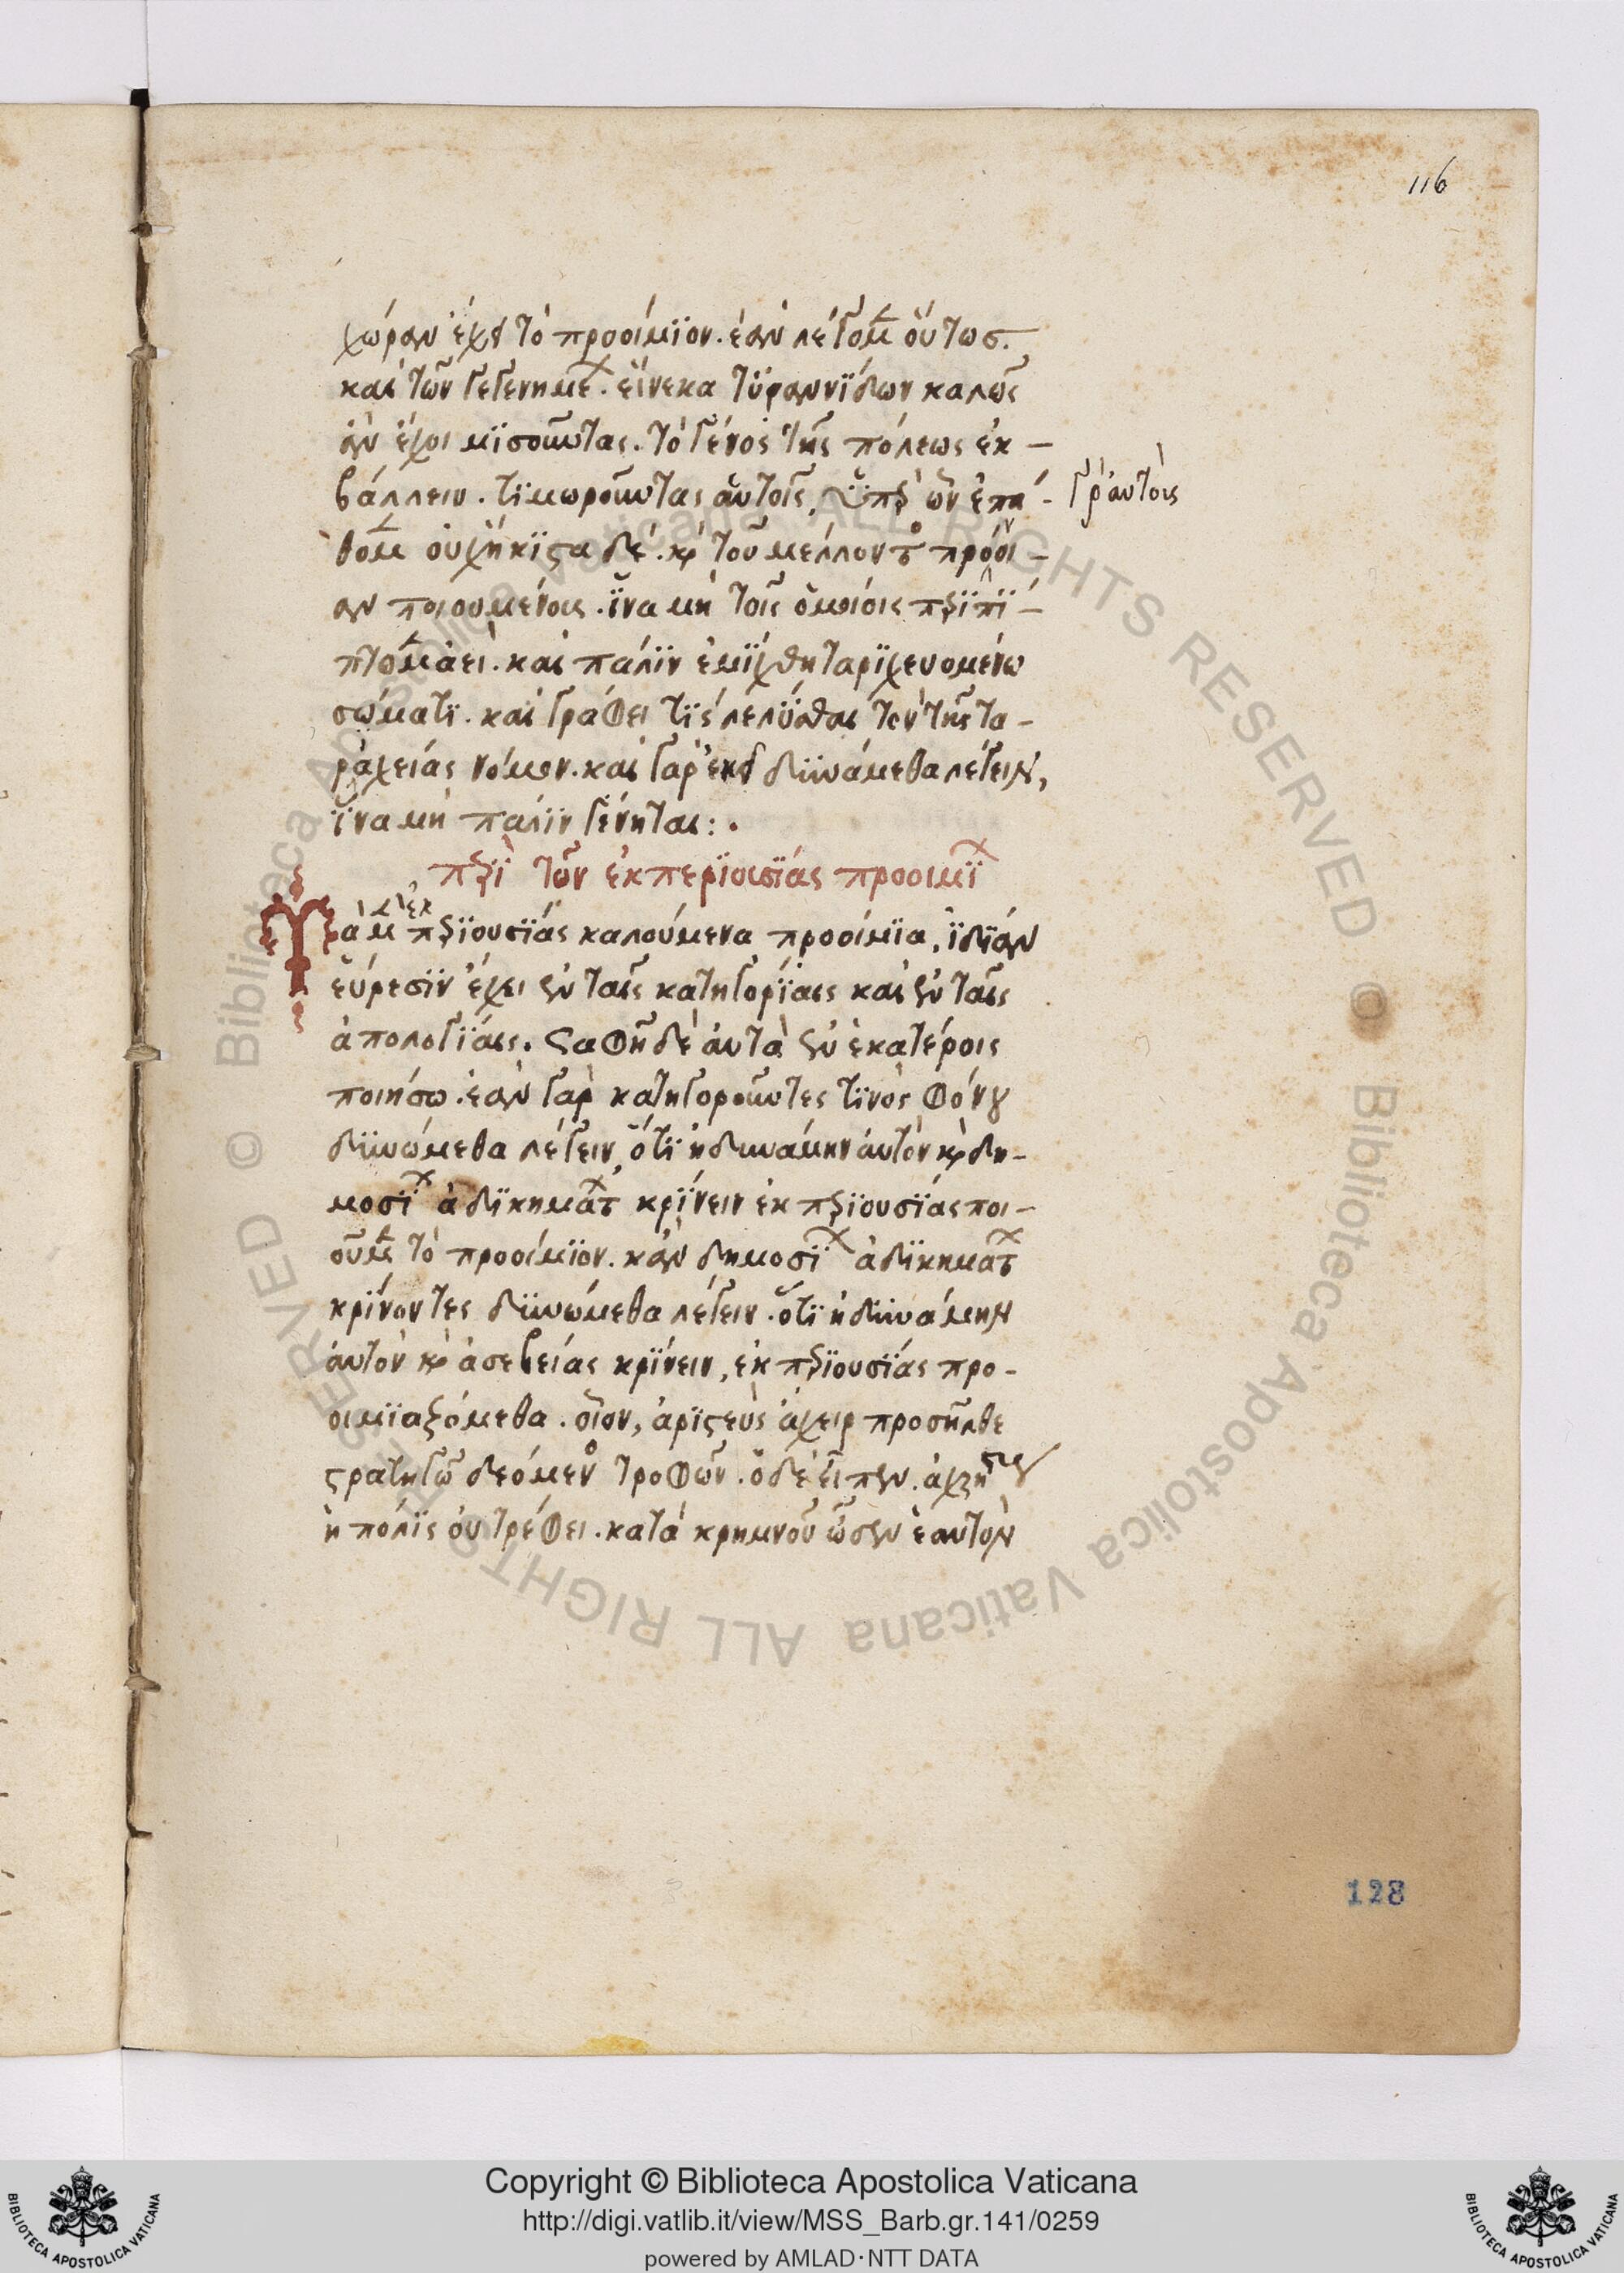 116
χώραν ἔχει τὸ προοίμϊον. ἐὰν λέγομεν οὕτως.
καὶ τῶν γεγενημε. εἵνεκα τϋραννΐδων καλῶς
ἂν ἔχοι μϊσοῦντας. τὸ γένος τῆς πόλεως ἐκ-
βάλλειν. τϊμωροῦντας αὐτοῖς, ὑπὲρ ὧν ἐπά-
γρ αυτοὺς
θομεν οὐχ ἥκϊστα δὲ. καὶ τοῦ μέλλοντος πρόνοι-
αν ποιουμένοις. ἵνα μὴ τοῖς ὁμοίοις περϊπΐ-
πτομεν ἀεὶ. καὶ πάλϊν ἐμΐχθη ταρϊχευομένω
σώματϊ. καὶ γράφει τϊς λελύσθαι τὸν τῆς τα-
ρϊχείας νόμον. καὶ γὰρ ἐκεῖ δϋνάμεθα λέγειν,
ἵνα μὴ πάλϊν γένηται:.
περὶ τῶν ἐκ περϊουσϊάς προοιμΐ
Τὰ μὲν ἐκ περϊουσϊάς καλούμενα προοίμϊα, ϊδΐαν
εὕρεσϊν ἔχει ἐν ταῖς κατηγορΐαις καὶ ἐν ταῖς
ἀπολογΐαις. σαφῆ δὲ αὐτὰ ἐν ἑκατέροις
ποιήσω. ἐὰν γὰρ κατηγοροῦντες τϊνὸς φόνου
δϋνώμεθα λέγειν, ὅτϊ ἠδυνάμην αὐτὸν καὶ δη-
μοσΐ ἀδϊκημάτ κρΐνειν ἐκ περϊουσϊάς ποι-
οῦμεν τὸ προοίμϊον. κἂν δημοσΐ ἀδϊκημάτ
κρΐνοντες δϋνώμεθα λέγειν. ὅτϊ ἠδϋνάμην
αὐτὸν καὶ ἀσεβείας κρΐνειν, ἐκ περϊουσϊάς προ-
οιμϊαζόμεθα. οἷον, ἀρϊστεὺς ἄχειρ προσῆλθε
στρατηγῶ δεόμενος τροφῶν. ὁ δὲ εἶπεν.
ἡ πόλϊς οὐ τρέφει. κατὰ κρημνοῦ ὦσεν ἑαυτὸν
128
Copyright © Biblioteca Apostolica Vaticana
http://digi.vatlib.it/view/MSS_Barb.gr.141/0259
powered by AMLAD·NTT DATA